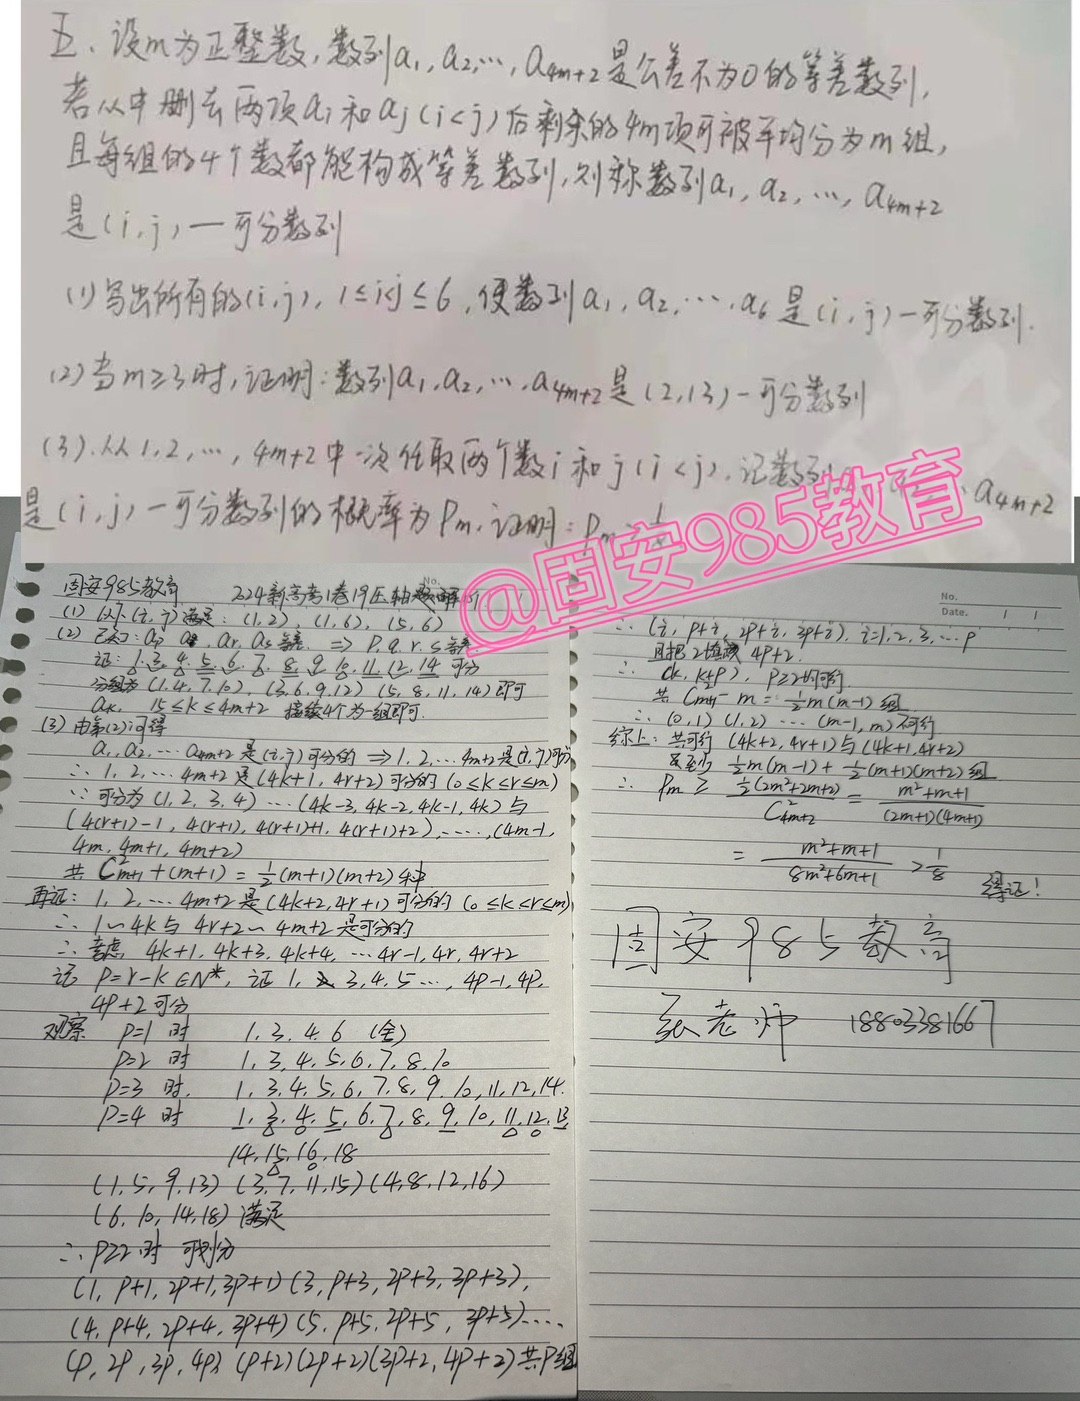 五、设m为正整数,数列a₁,a₂,…,a₄ₘ₊₂是公差不为0的等差数列,
若从中删去两项aᵢ和aⱼ(i<j)后剩余的4m项可被平均分为m组,
且每组的4个数都能构成等差数列,则称数列a₁,a₂,…,a₄ₘ₊₂
是(i,j)—可分数列
(1)写出所有的(i,j),1≤i<j≤6,使数列a₁,a₂,…,a₆是(i,j)—可分数列.
(2)当m≥3时,证明:数列a₁,a₂,…,a₄ₘ₊₂是(2,13)—可分数列
(3).从1,2,…,4m+2中一次任取两个数i和j(i<j),记数列
a₄ₘ₊₂
是(i,j)—可分数列的概率为Pₘ,证明:Pₘ>
@固安985教育
固安985教育 2024新高考1卷19压轴题解
(1) 以下(i,j)满足:(1,2),(1,6),(5,6)
(2) 已知:
等差 ⇒ p.q.r.s等差
证:1,3,4,5,6,7,8,9,10,11,12,14可分
分组为(1,4,7,10),(3,6,9,12)(5,8,11,14)即可
aₖ, 15≤k≤4m+2 接续4个为一组即可.
(3) 由第(2)问得
a₁,a₂,…a₄ₘ₊₂是(i,j)可分的⇒1,2,…4m+2是(i,j)可分
∴1,2,…4m+2是(4k+1,4r+2)可分的(0≤k≤r≤m)
∵可分为(1,2,3,4)…(4k-3,4k-2,4k-1,4k)与
(4(r+1)-1,4(r+1),4(r+1)+1,4(r+1)+2),……,(4m-1,
4m,4m+1,4m+2)
共C²ₘ₊₁+(m+1)=½(m+1)(m+2)种
再证:1,2,…4m+2是(4k+2,4r+1)可分的(0≤k≤r≤m)
∴1~4k与4r+2~4m+2是可分的
∴考虑 4k+1,4k+3,4k+4,…4r-1,4r,4r+2
记 p=r-k∈N*,证1,3,4,5…,4p-1,4p,
4p+2可分
观察 p=1时 1,3,4,6 (舍)
p=2时 1,3,4,5,6,7,8,10
p=3时. 1,3,4,5,6,7,8,9,10,11,12,14.
p=4时 1,3,4,5,6,7,8,9,10,11,12,13
14,15,16,18
(1,5,9,13)(3,7,11,15)(4,8,12,16)
(6,10,14,18)满足
∴p≥2时 可划分
(1,p+1,2p+1,3p+1)(3,p+3,2p+3,3p+3),
(4,p+4,2p+4,3p+4)(5,p+5,2p+5,3p+5)……
(p,2p,3p,4p)(p+2)(2p+2)(3p+2,4p+2)共p组
No.
Date.
∴(i,p+i,2p+i,3p+i),i=1,2,3,…p
且把2填成4p+2.
∴(k,k+p),p≥2均可行
共C²ₘ₊₁-m=½m(m-1)组
∴(0,1)(1,2)…(m-1,m)不可行
综上:共可行(4k+2,4r+1)与(4k+1,4r+2)
至少½m(m-1)+½(m+1)(m+2)组
∴Pₘ≥½(2m²+2m+2)/C²₄ₘ₊₂=m²+m+1/(2m+1)(4m+1)
=m²+m+1/8m²+6m+1>1/8 得证!
固安985教育
张老师 18803381667